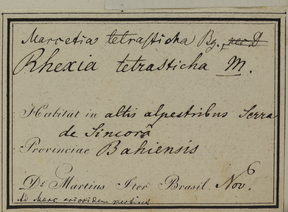 Marcetia tetrasticha
Rhexia tetrasticha M.
Habitat in altis alpestribus Serra
de Sincorá
Provinciae Bahiensis
Dr Martius Iter Brasil. Nov.